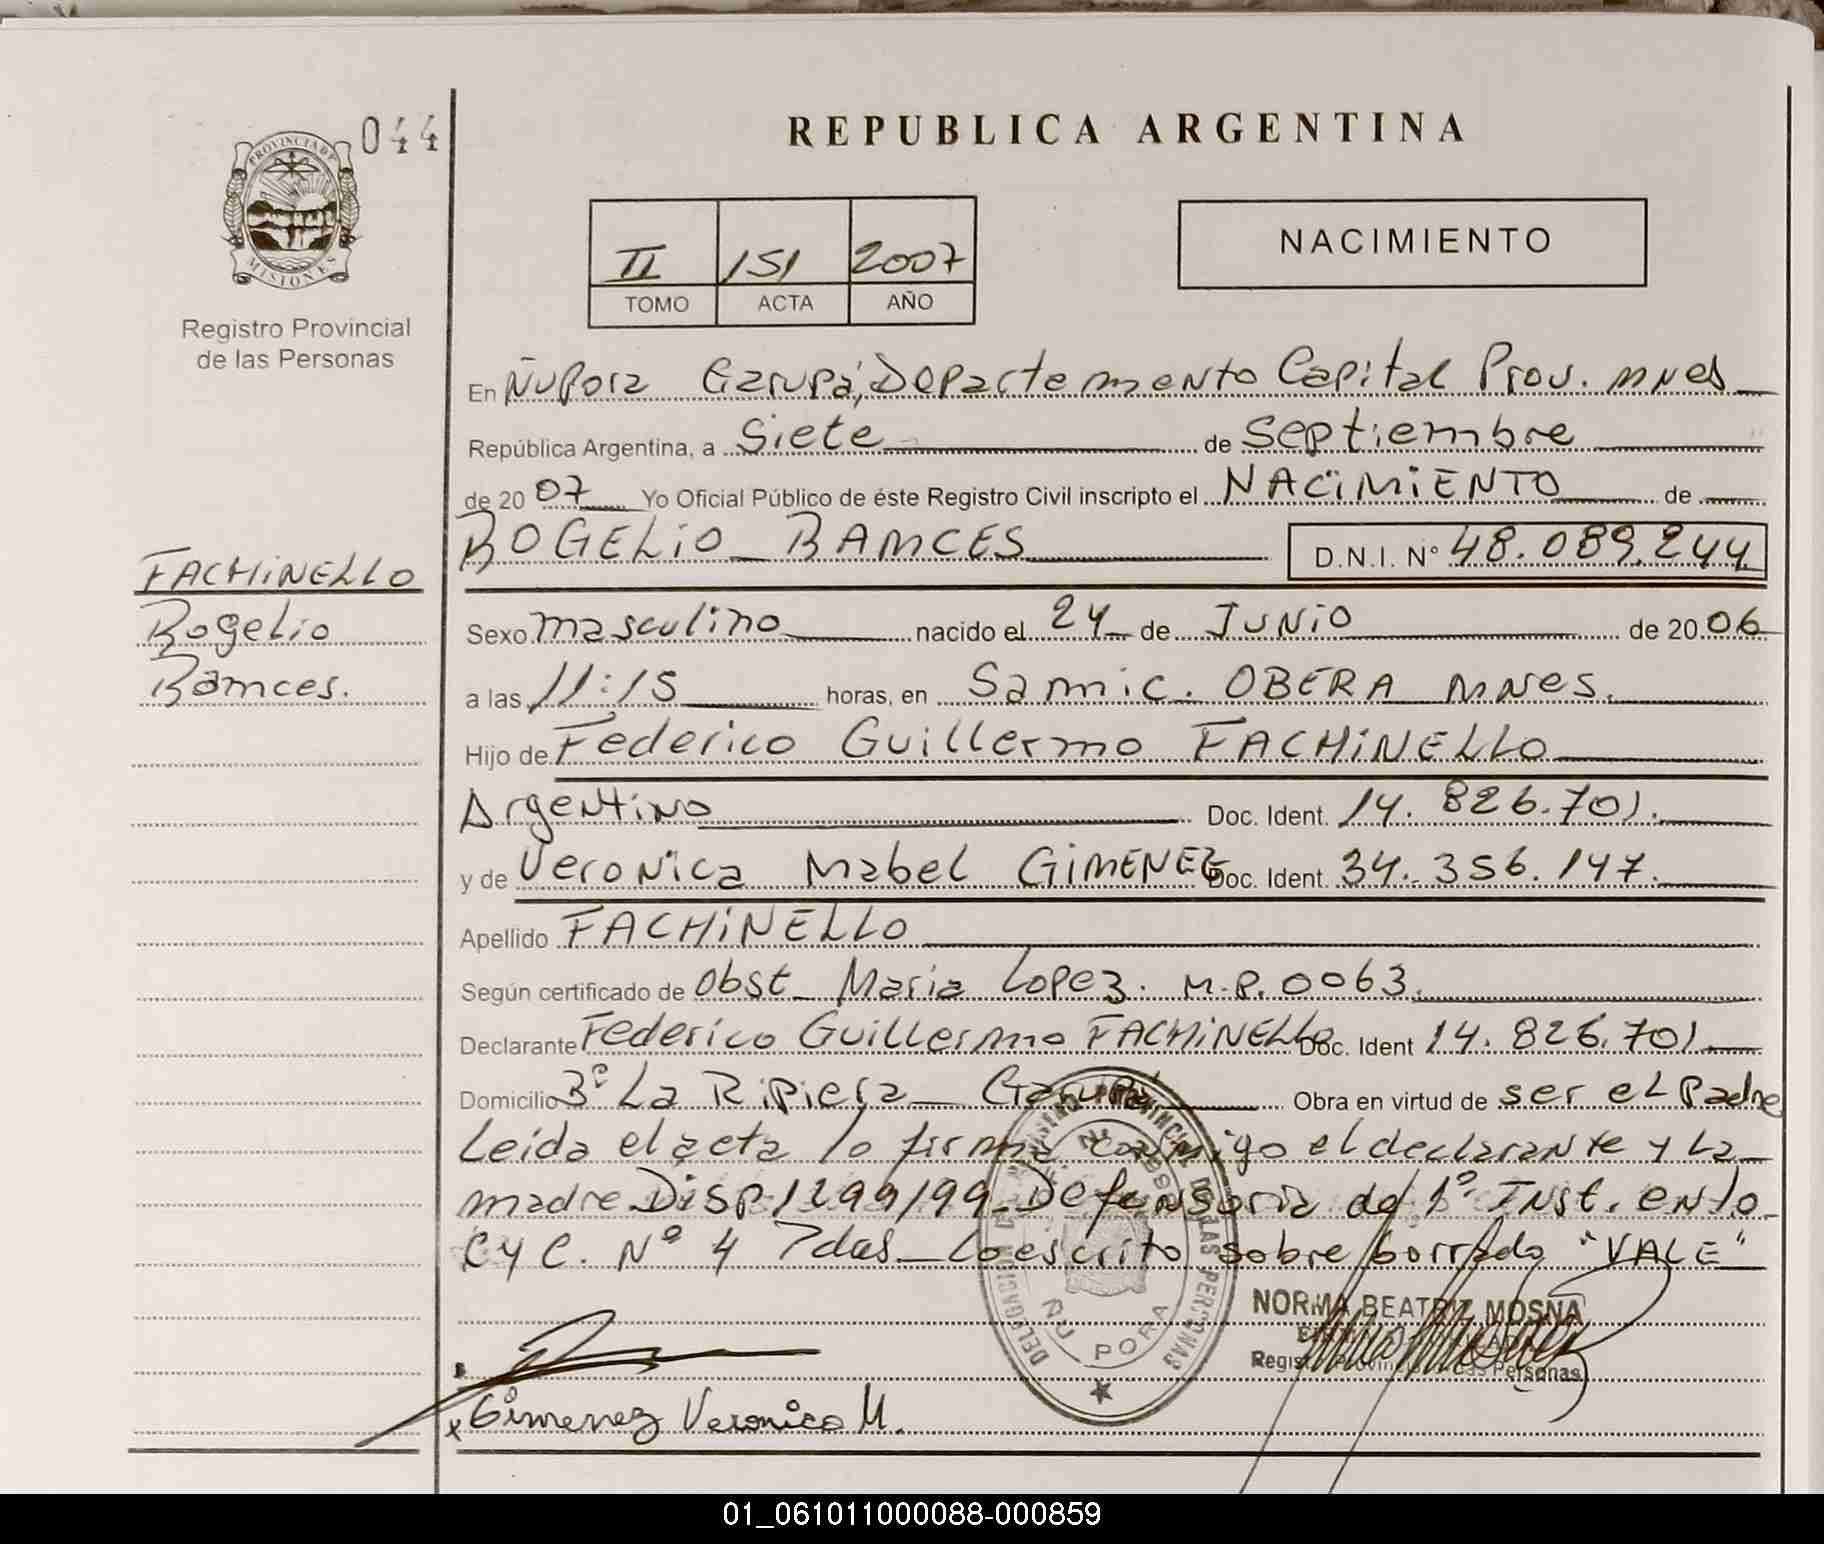 044
REPUBLICA ARGENTINA
PROVINCIA DE
MISIONES
Registro Provincial
de las Personas
II 151 2007
TOMO ACTA AÑO
NACIMIENTO
En Ñu Pora Garupá, Departamento Capital Prov. Mnes
República Argentina, a Siete de Septiembre
de 2007 Yo Oficial Público de éste Registro Civil inscripto el NACIMIENTO de
ROGELIO RAMCES D.N.I. Nº 48.089.244
FACHINELLO
Rogelio
Ramces.
Sexo masculino nacido el 24 de JUNIO de 2006
a las 11:15 horas, en Samic. OBERA Mnes.
Hijo de Federico Guillermo FACHINELLO
Argentino Doc. Ident. 14.826.701.
y de Veronica Mabel GIMENEZ Doc. Ident. 34.356.147.
Apellido FACHINELLO
Según certificado de Obst. Maria Lopez. M.P. 0063.
Declarante Federico Guillermo FACHINELLO Doc. Ident 14.826.701
Domicilio Bº La Ripiera Garupá Obra en virtud de ser el Padre
Leida el acta lo firma conmigo el declarante y La
madre Disp 1299/99 Defensoria de 1º Inst. en lo
C y C. Nº 4 Pdas. Lo escrito sobre borrado "VALE"
NORMA BEATRIZ MOSNA
Registro Provincial de las Personas
DELEGACION REGISTRO PROVINCIAL DE LAS PERSONAS
ÑU PORA
x Gimenez Veronica M.
01_061011000088-000859